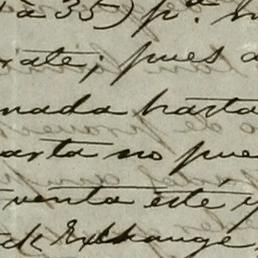 à 35) p.ª
pues
nada hasta
carta no pue
venta esté y
Exchange,